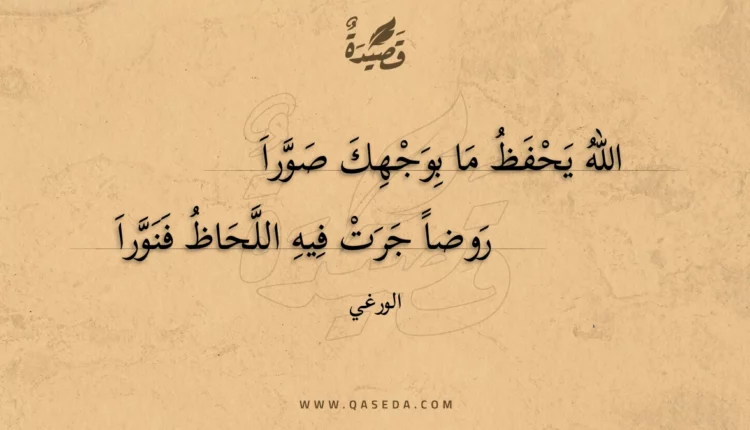 قَصِيْدَةٌ
اللهُ يَحْفَظُ مَا بِوَجْهِكَ صَوَّراَ
رَوضاً جَرَتْ فِيهِ اللَّحَاظُ فَنَوَّراَ
الورغي
WWW.QASEDA.COM